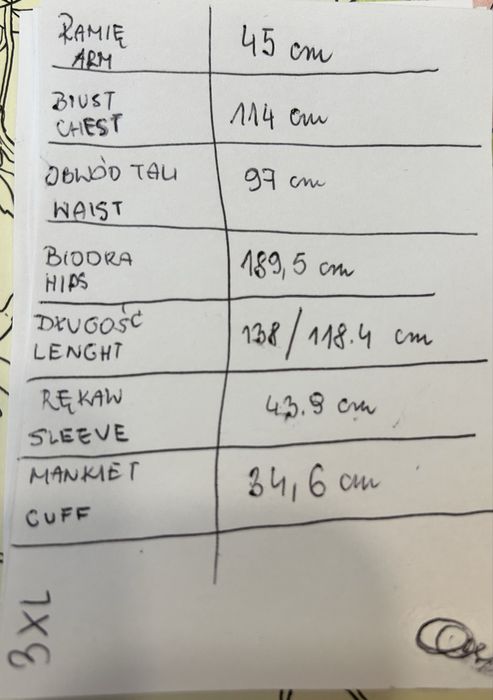 RAMIĘ 45 cm
ARM
BIUST 114 cm
CHEST
OBWÓD TALI 97 cm
WAIST
BIODRA 189,5 cm
HIPS
DŁUGOŚĆ 138/118.4 cm
LENGHT
RĘKAW 43.9 cm
SLEEVE
MANKIET 34,6 cm
CUFF
3XL